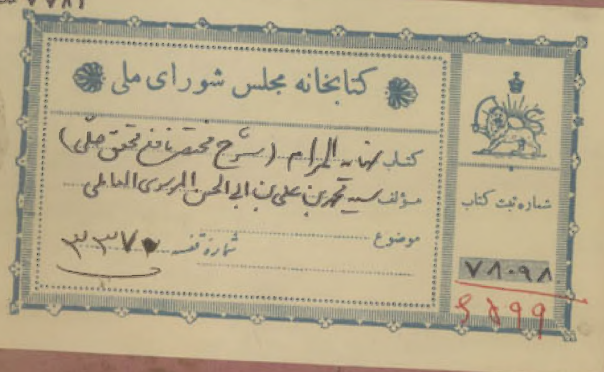 کتابخانه مجلس شورای ملی
کتاب نهایه المرام (شرح مختصر نافع محقق حلّی)
مؤلف سید محمد بن علی بن ابی الحسن الموسوی العاملی
موضوع
شماره قفسه ۳۳۷۰
شماره ثبت کتاب
۷۸۰۹۸